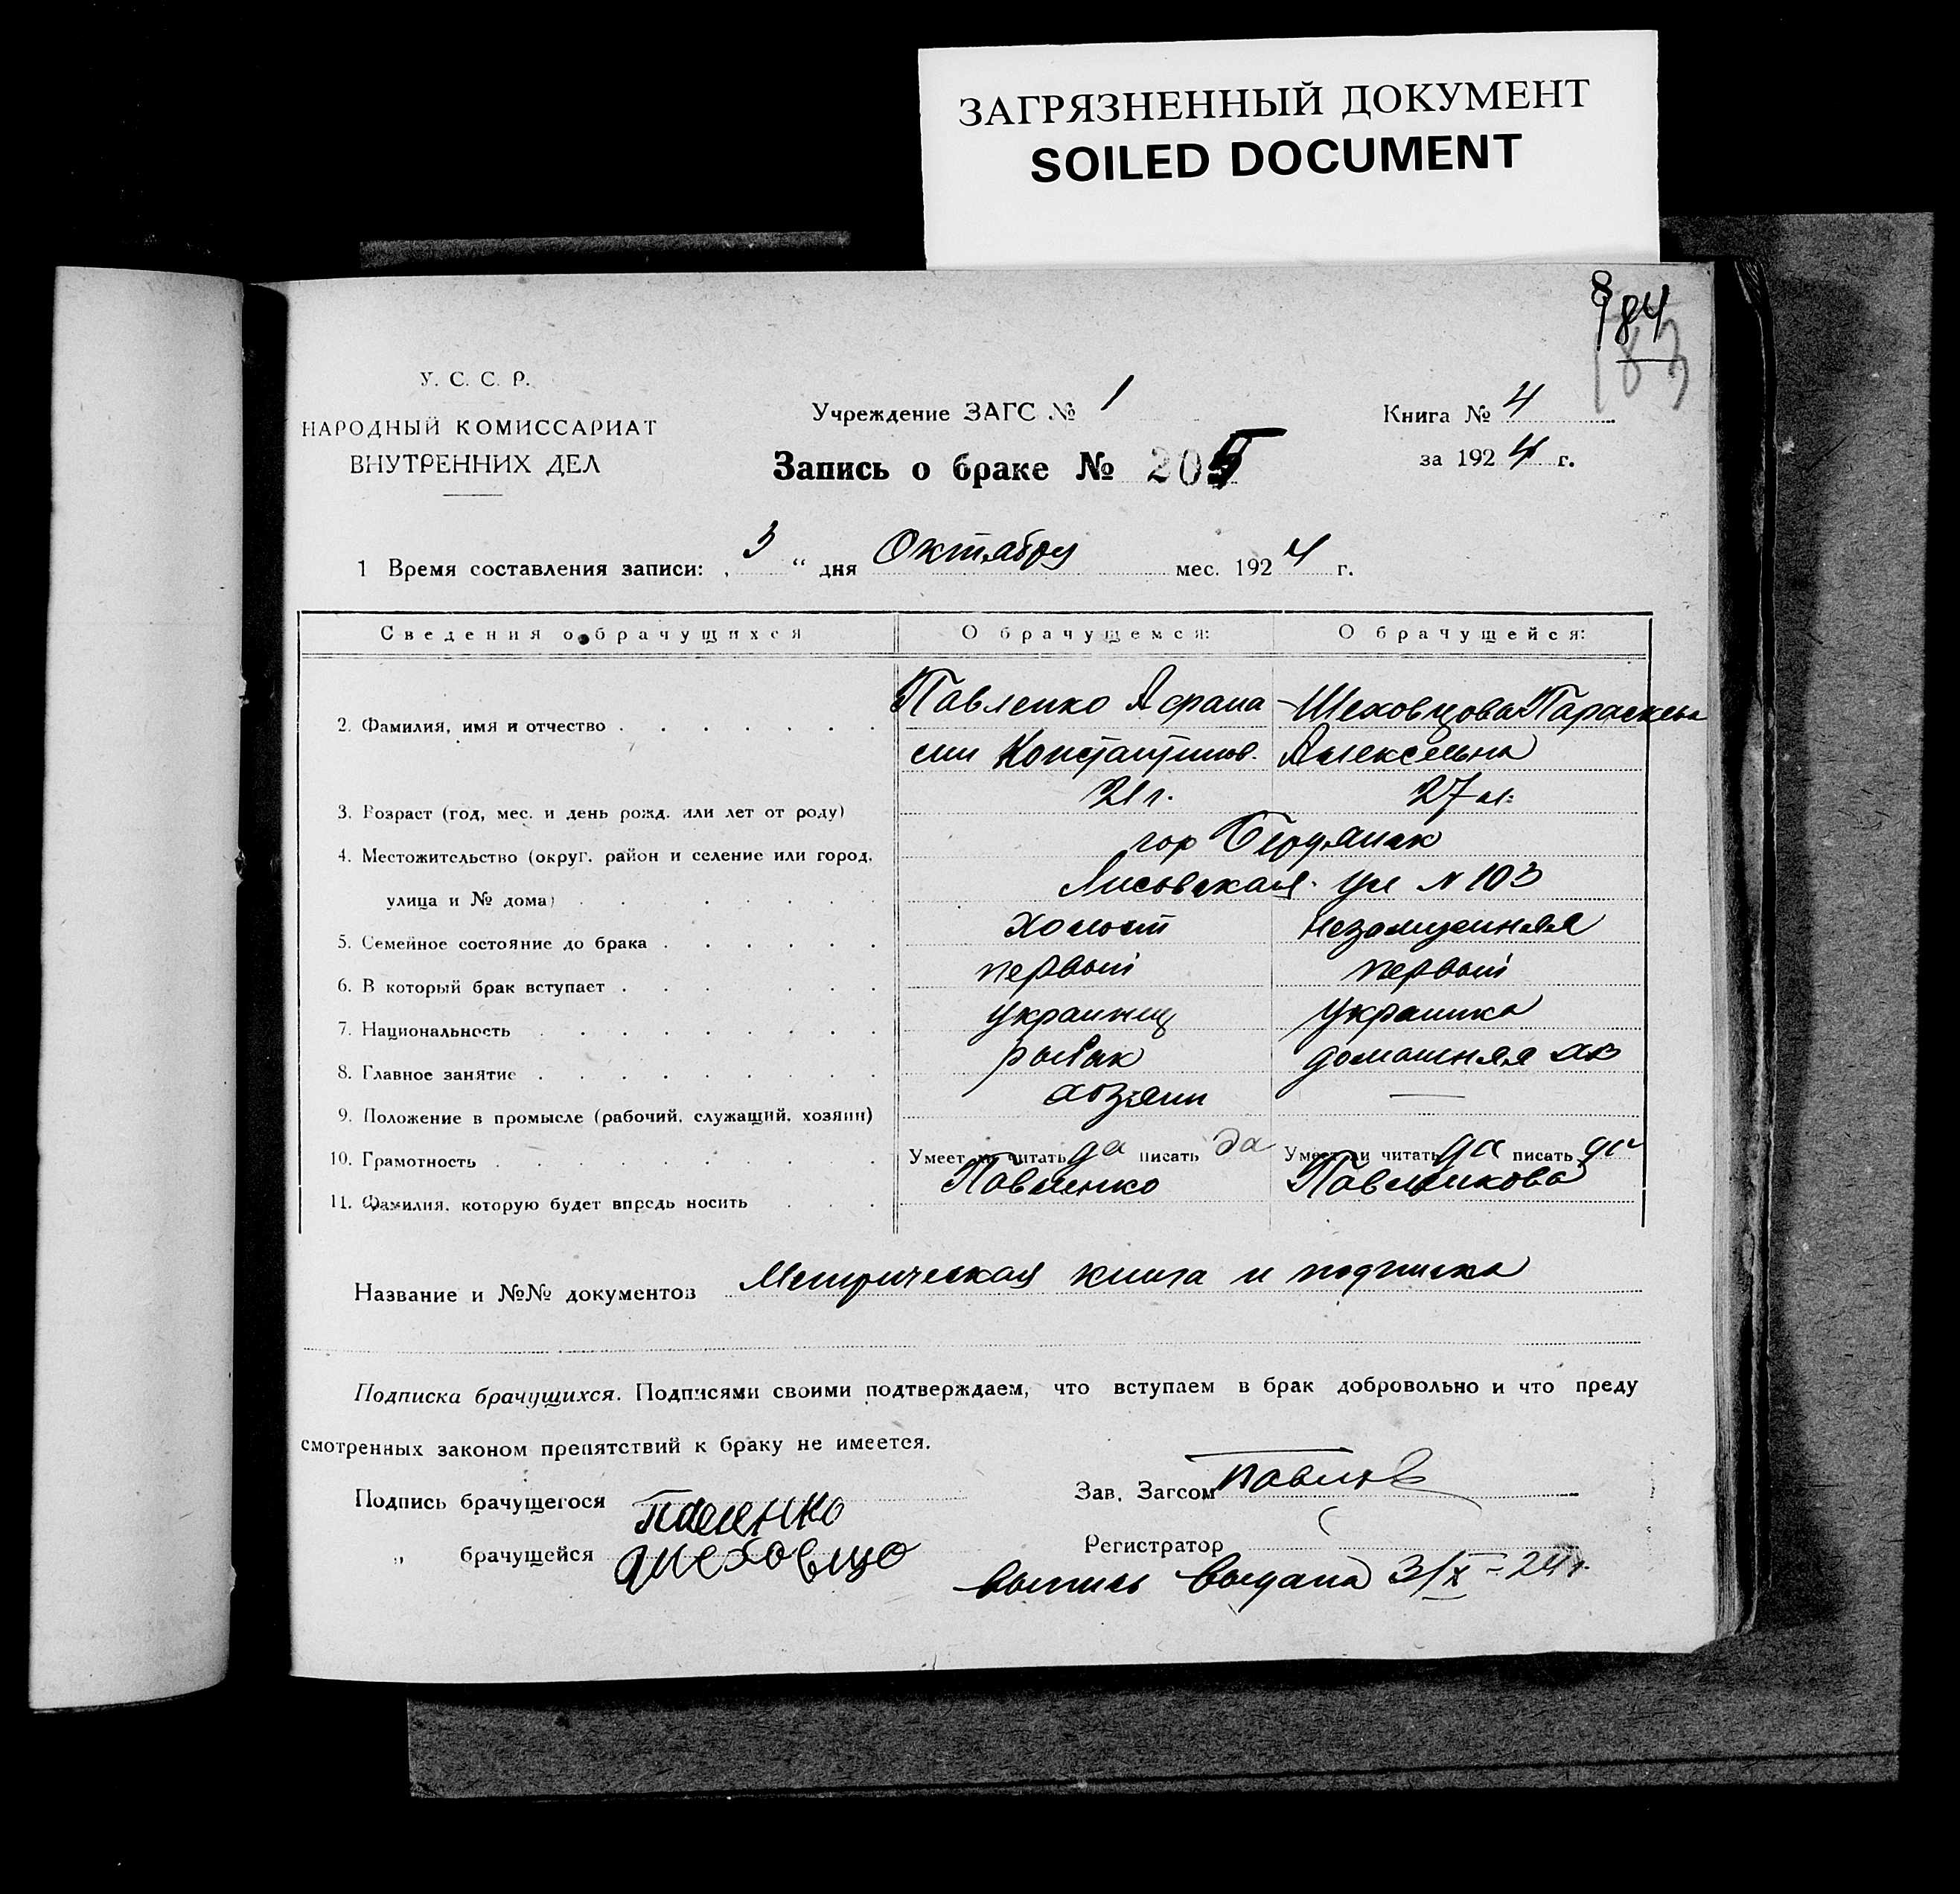 ЗАГРЯЗНЕННЫЙ ДОКУМЕНТ
SOILED DOCUMENT
184
183
У. С. С. Р.
НАРОДНЫЙ КОМИССАРИАТ
ВНУТРЕННИХ ДЕЛ
Учреждение ЗАГС № 1
Книга № 4
Запись о браке № 205
за 1924 г.
1 Время составления записи: „ 3 “ дня Октября мес. 1924 г.
Сведения о брачущихся О брачущемся: О брачущейся:
2. Фамилия, имя и отчество Павленко Афана Шеховцова Параскева
сии Константинов. Алексеевна
3. Возраст (год, мес. и день рожд. или лет от роду) 21 г. 27 л.
4. Местожительство (округ, район и селение или город, гор Бердянск
улица и № дома) Лисовская ул N 103
5. Семейное состояние до брака холост незамужняя
6. В который брак вступает первый первый
7. Национальность украинец украинка
8. Главное занятие рыбак домашняя хоз
9. Положение в промысле (рабочий, служащий, хозяин) хозяин —
10. Грамотность Умеет ли читать да писать да Умеет ли читать да писать да
11. Фамилия, которую будет впредь носить Павленко Павленкова
Название и №№ документов Метрическая книга и подписка
Подписка брачущихся. Подписями своими подтверждаем, что вступаем в брак добровольно и что преду
смотренных законом препятствий к браку не имеется.
Подпись брачущегося Павленко
Зав. Загсом
„ брачущейся Шеховцо
Регистратор
выпись выдана 3/X - 24 г.